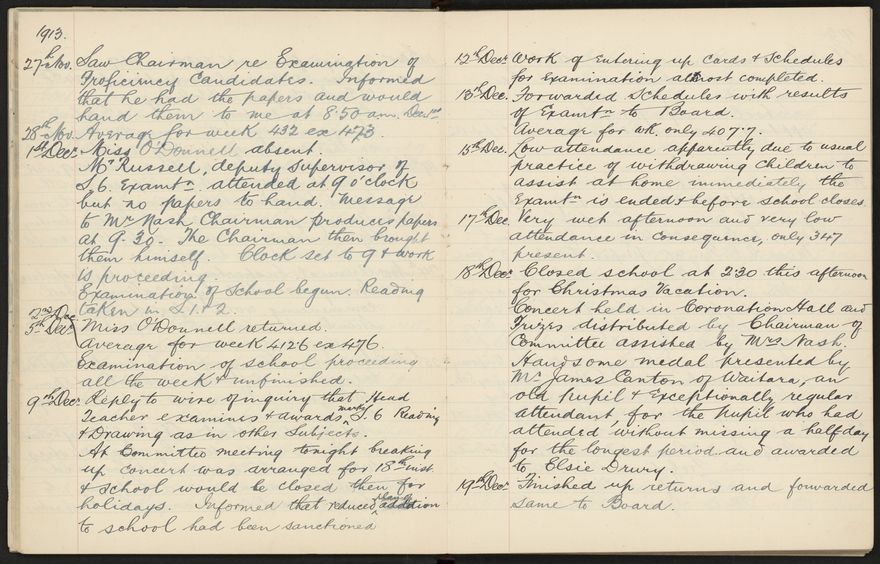 1913.
27th Nov. Saw Chairman re Examination of
Proficiency Candidates. Informed
that he had the papers and would
hand them to me at 8.50 a.m. Dec 1st
28th Nov. Average for week 432 ex 473.
1st Decr. Miss O'Donnell absent.
Mr Russell, deputy Supervisor of
S 6. Examtn. attended at 9 o'clock
but no papers to hand. Message
to Mr Nash Chairman produces papers
at 9.30. The Chairman then brought
them himself. Clock set to 9 & work
is proceeding.
Examination of School begun. Reading
taken in S 1 & 2.
2nd Dec.
5th Decr. Miss O'Donnell returned.
Average for week 412.6 ex 476.
Examination of school proceeding
all the week & unfinished.
9th Decr. Reply to wire of inquiry that Head
Teacher examines & awards marks S. 6 Reading
& Drawing as in other Subjects.
At Committee meeting tonight breaking
up concert was arranged for 18th inst
& School would be closed then for
holidays. Informed that reduced plan of addition
to school had been sanctioned
12th Decr. Work of entering up Cards & Schedules
for examination almost completed.
13th Dec. Forwarded Schedules with results
of Examtn to Board.
Average for wk, only 407.7.
15th Dec. Low attendance apparently due to usual
practice of withdrawing children to
assist at home immediately the
Examtn is ended & before school closes.
17th Dec. Very wet afternoon and very low
attendance in consequence, only 347
present.
18th Decr. Closed school at 2.30 this afternoon
for Christmas Vacation.
Concert held in Coronation Hall and
Prizes distributed by Chairman of
Committee assisted by Mrs Nash.
Handsome medal presented by
Mr James Canton of Waitara, an
old pupil & exceptionally regular
attendant, for the pupil who had
attended without missing a halfday
for the longest period and awarded
to Elsie Drury.
19th Decr. Finished up returns and forwarded
same to Board.